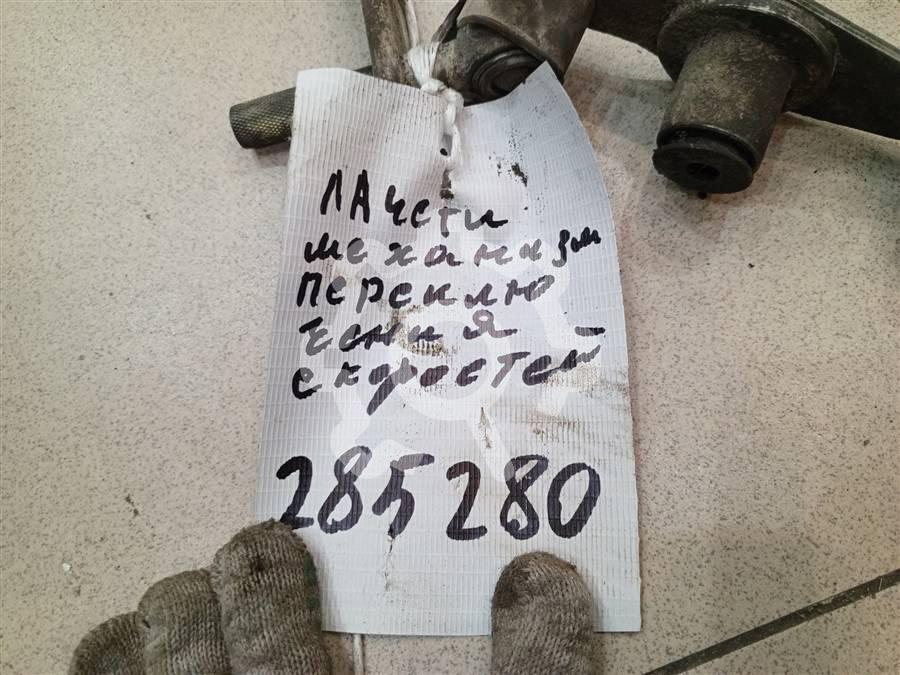 ЛАчети
механизм
переклю
чения
скоростей
285280